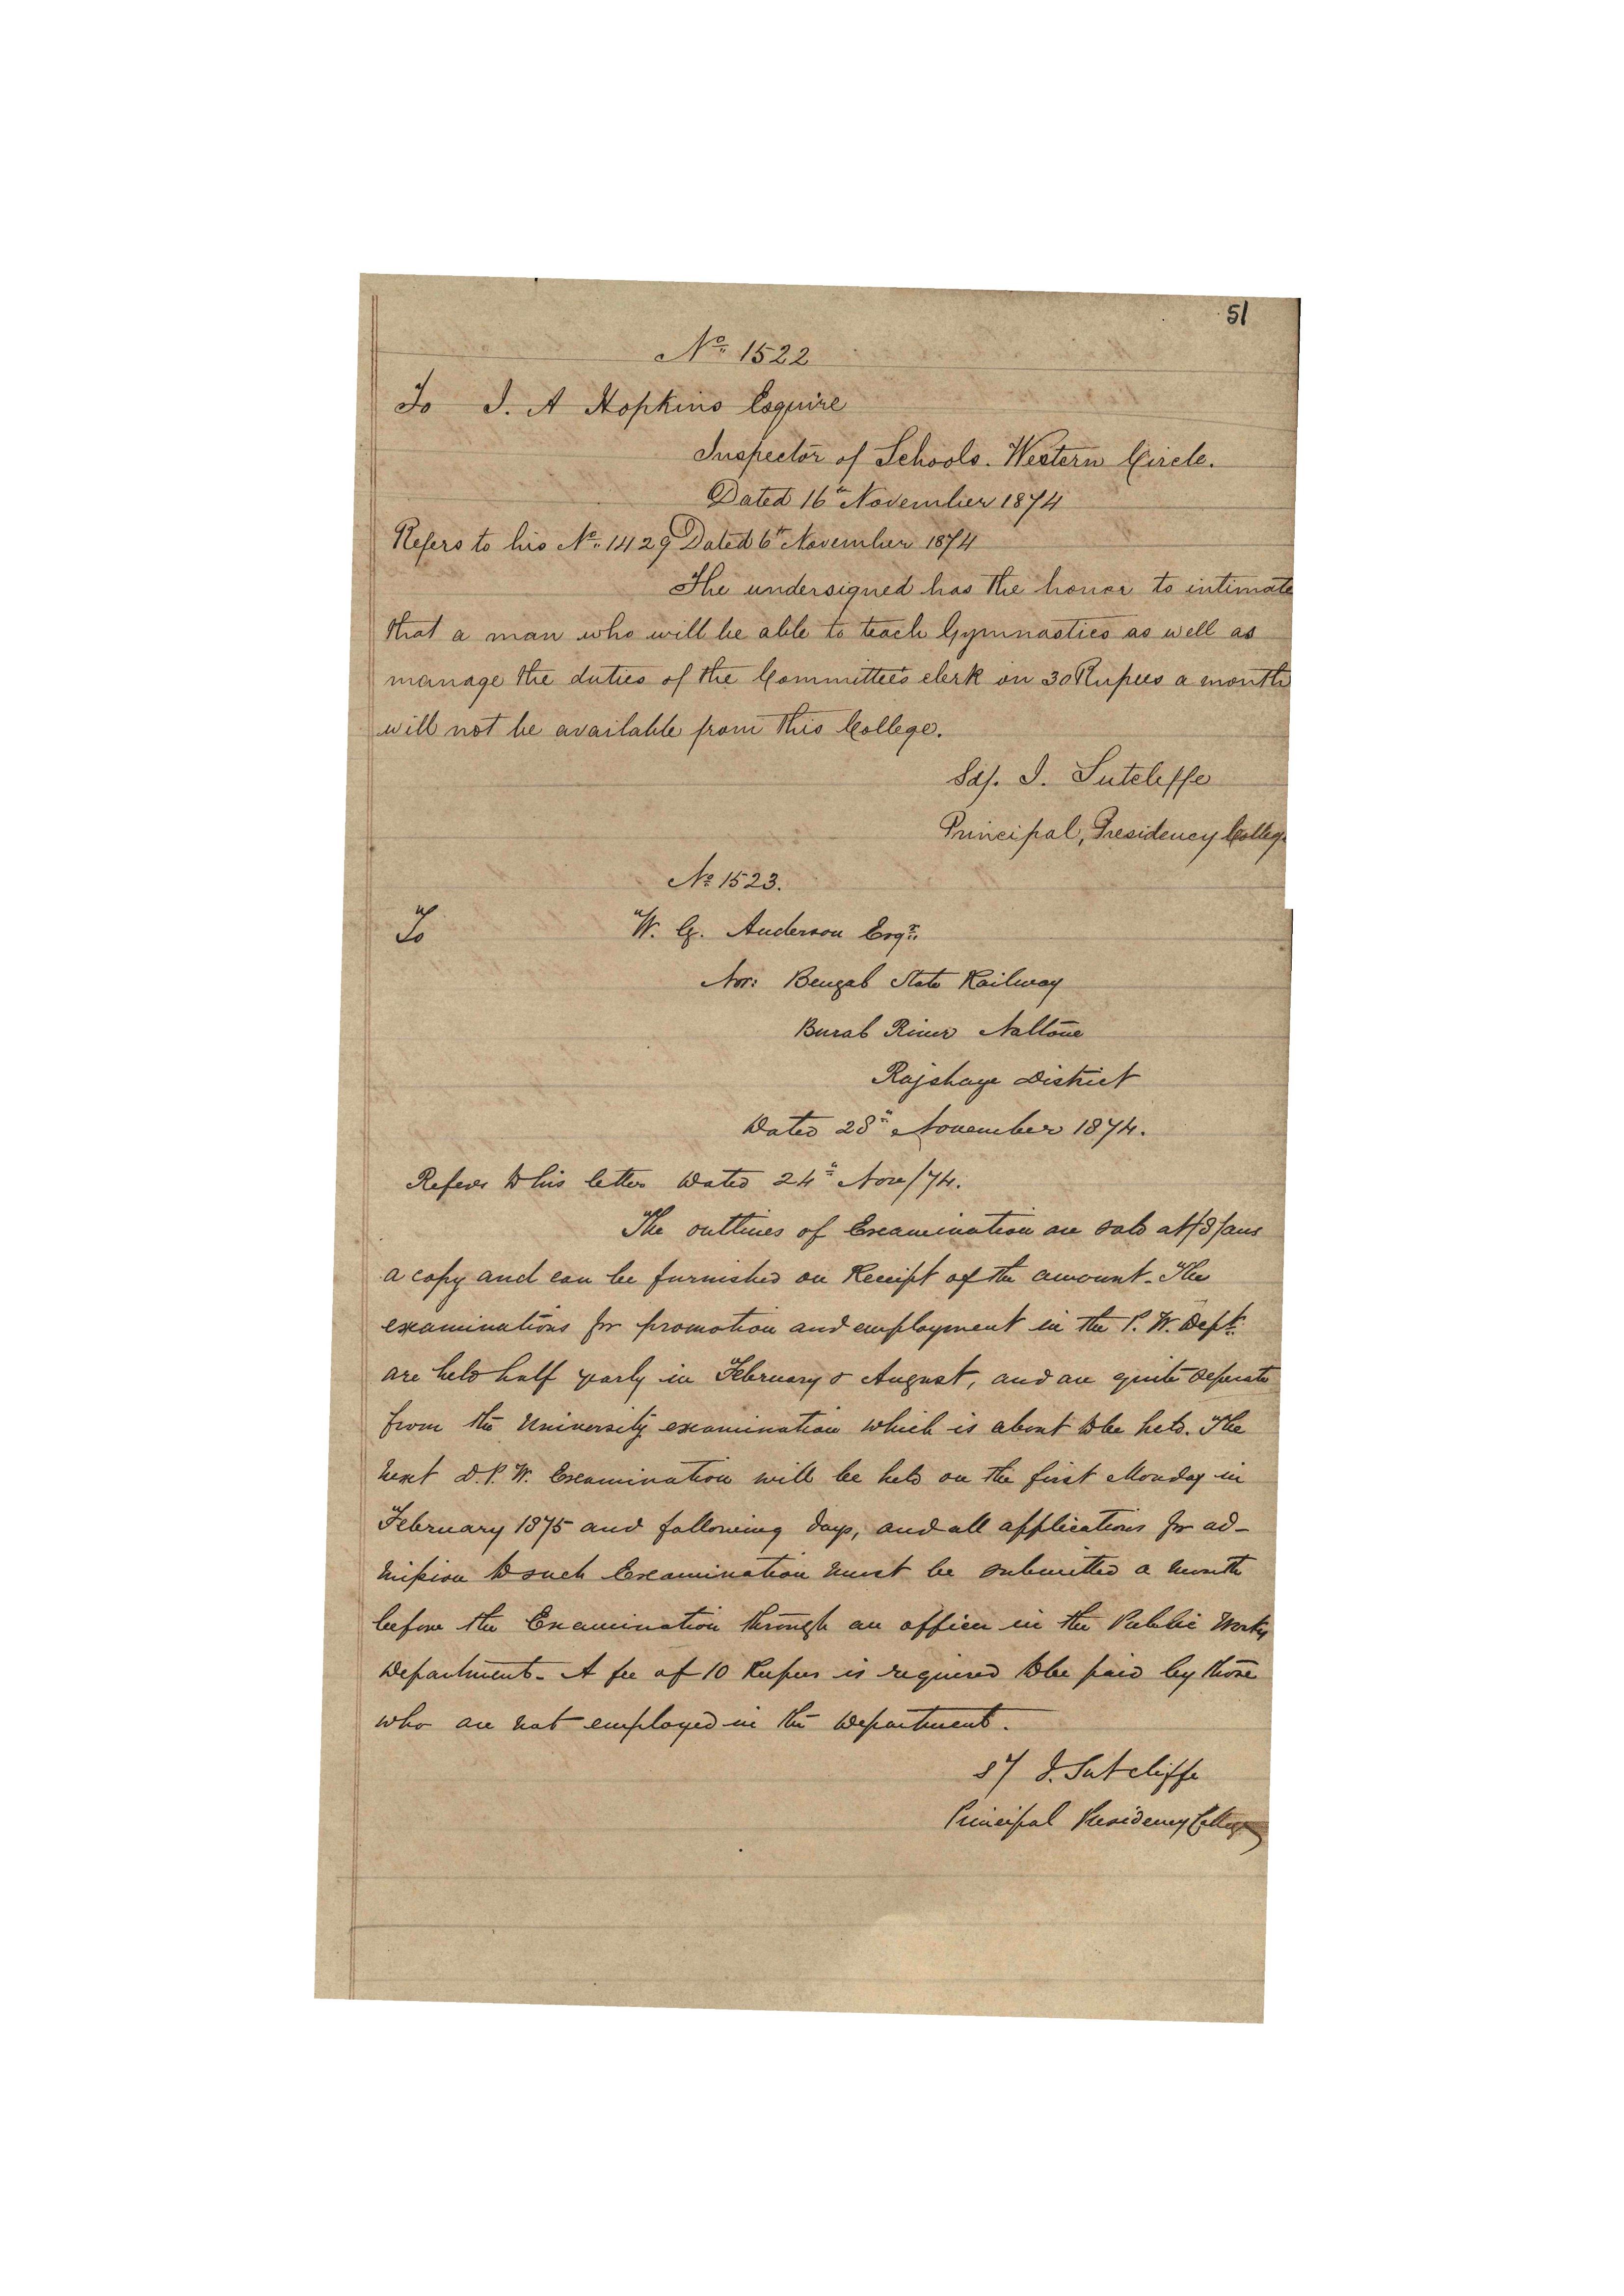 51
No. 1522
To J. A Hopkins Esquire
Inspector of Schools. Western Circle.
Dated 16th November 1874
Refers to his No. 1429 Dated 6th November 1874
The undersigned has the honor to intimate
that a man who will be able to teach Gymnastics as well as
manage the duties of the Committee's clerk on 30 Rupees a month
will not be available from this College.
Sd/. J. Sutcliffe
Principal, Presidency College
No 1523.
To W. G. Anderson Esqr.
Nor: Bengal State Railway
Burab River
Rajshaye District
Dated 28th November 1874.
Refers to his letter dated 24th Nov/74.
The outlines of Examination are sold at /8/ans
a copy and can be furnished on Receipt of the amount. The
examinations for promotion and employment in the P. W. Dept.
are held half yearly in February & August, and are quite separate
from the University examination which is about to be held. The
next D. P. W. Examination will be held on the first Monday in
February 1875 and following days, and all applications for ad-
mission to such Examination must be submitted a month
before the Examination through an officer in the Public Works
Department. A fee of 10 Rupees is required to be paid by those
who are not employed in the Department.
S/ J. Sutcliffe
Principal Presidency College